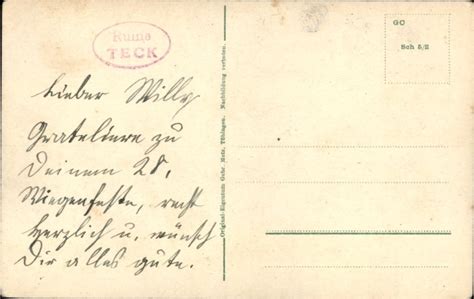 Ruine
TECK
Lieber Willy
Grateliere zu
Deinem 28,
Wiegenfeste, recht
herzlich u, wünsch
Dir alles gute.
Original-Eigentum Gebr. Metz, Tübingen. Nachbildung verboten.
GC
Sch 5/2